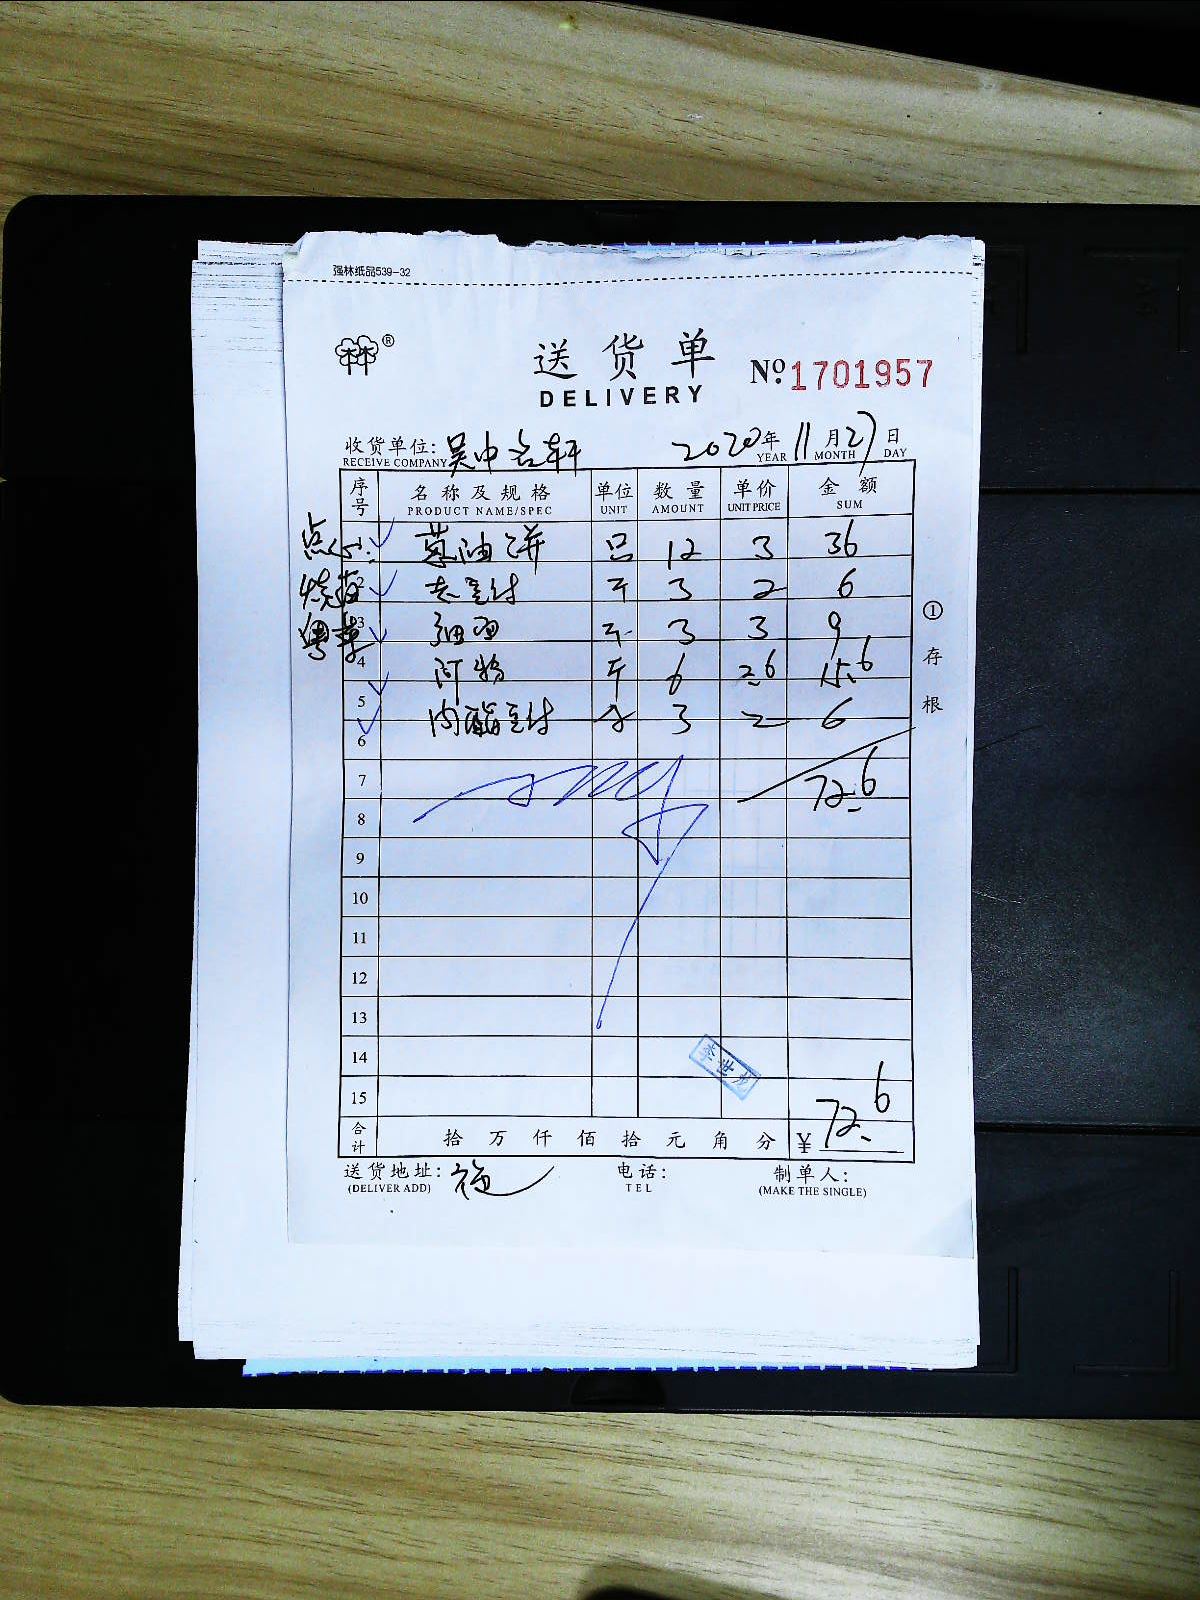 强林纸品539-32
林林®
送货单
DELIVERY
No.1701957
收货单位: 吴中名轩 2020年11月27日
RECEIVE COMPANY YEAR MONTH DAY
序号 名称及规格 单位 数量 单价 金额
PRODUCT NAME/SPEC UNIT AMOUNT UNIT PRICE SUM
点心: 葱油饼 只 12 3 36
烧烤 2 老豆付 斤 3 2 6
粤菜 3 细面 斤 3 3 9
4 斤 6 2.6 15.6
5 内酯豆付 3 2 6
6
7 72.6
8
9
10
11
12
13
14
15
合计 拾万仟佰拾元角分 ¥72.6
送货地址: 电话: 制单人:
(DELIVER ADD) TEL (MAKE THE SINGLE)
①存根